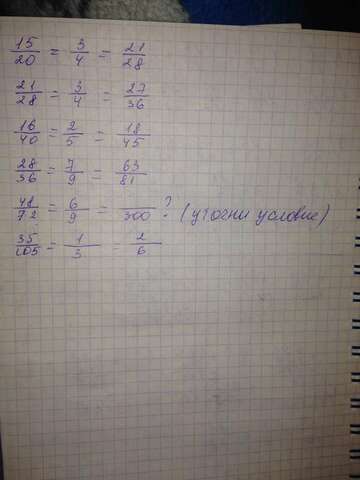 15/20 = 3/4 = 21/28
21/28 = 3/4 = 27/36
16/40 = 2/5 = 18/45
28/36 = 7/9 = 63/81
48/72 = 6/9 = /300 ? (уточни условие)
35/105 = 1/3 = 2/6